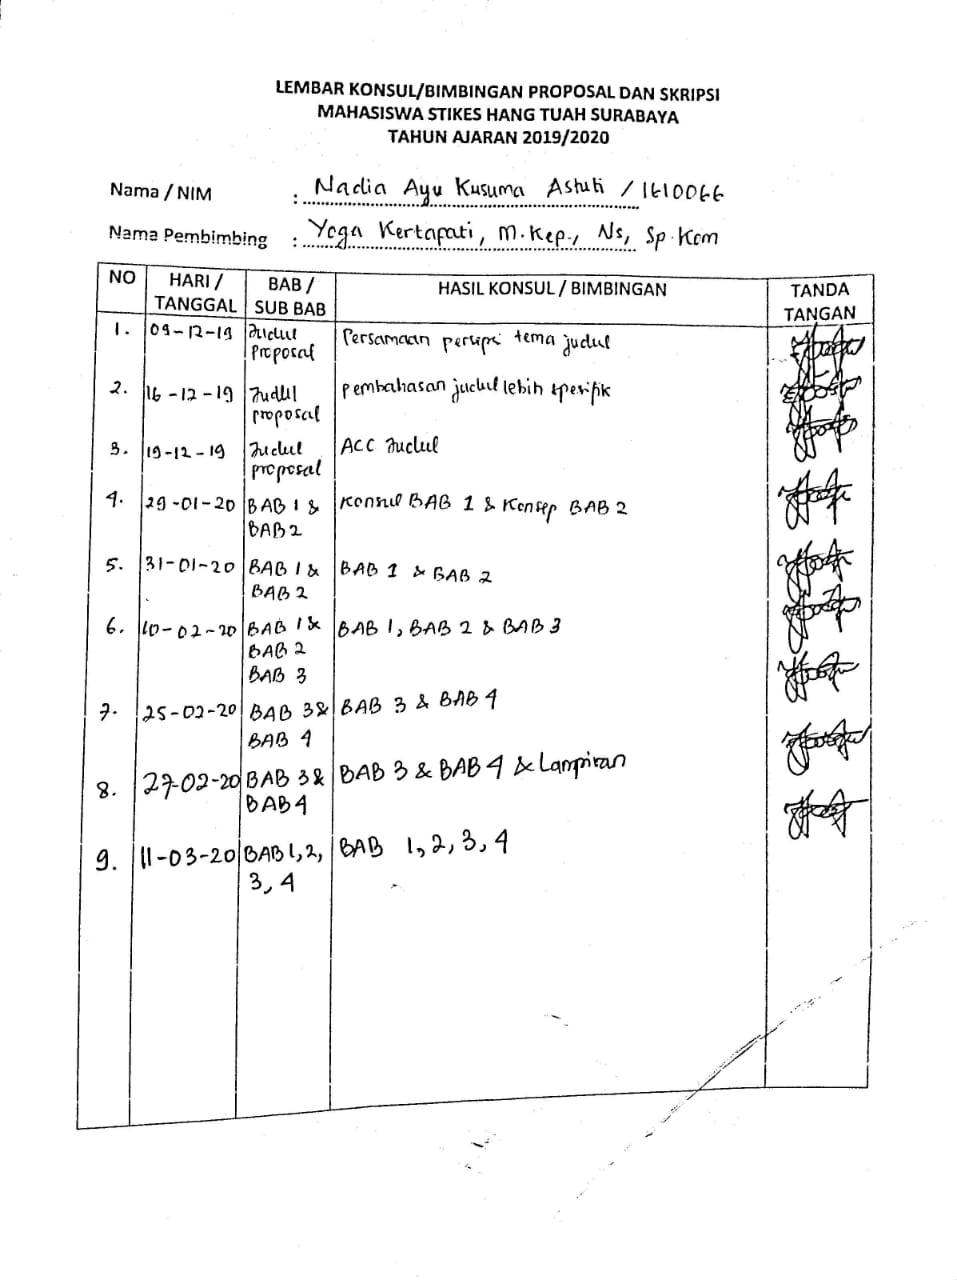 LEMBAR KONSUL/BIMBINGAN PROPOSAL DAN SKRIPSI
MAHASISWA STIKES HANG TUAH SURABAYA
TAHUN AJARAN 2019/2020
Nama / NIM : Nadia Ayu Kusuma Astuti / 1610066
Nama Pembimbing : Yoga Kertapati, M.Kep., Ns, Sp.Kom
NO HARI / TANGGAL BAB / SUB BAB HASIL KONSUL / BIMBINGAN TANDA TANGAN
1. 09-12-19 Judul Persamaan persepi tema judul
proposal
2. 16-12-19 Judul pembahasan judul lebih spesifik
proposal
3. 19-12-19 Judul ACC Judul
proposal
4. 29-01-20 BAB 1 & Konsul BAB 1 & Konsep BAB 2
BAB 2
5. 31-01-20 BAB 1 & BAB 1 & BAB 2
BAB 2
6. 10-02-20 BAB 1 & BAB 1, BAB 2 & BAB 3
BAB 2
BAB 3
7. 25-02-20 BAB 3 & BAB 3 & BAB 4
BAB 4
8. 27-02-20 BAB 3 & BAB 3 & BAB 4 & Lampiran
BAB 4
9. 11-03-20 BAB 1, 2, BAB 1, 2, 3, 4
3, 4